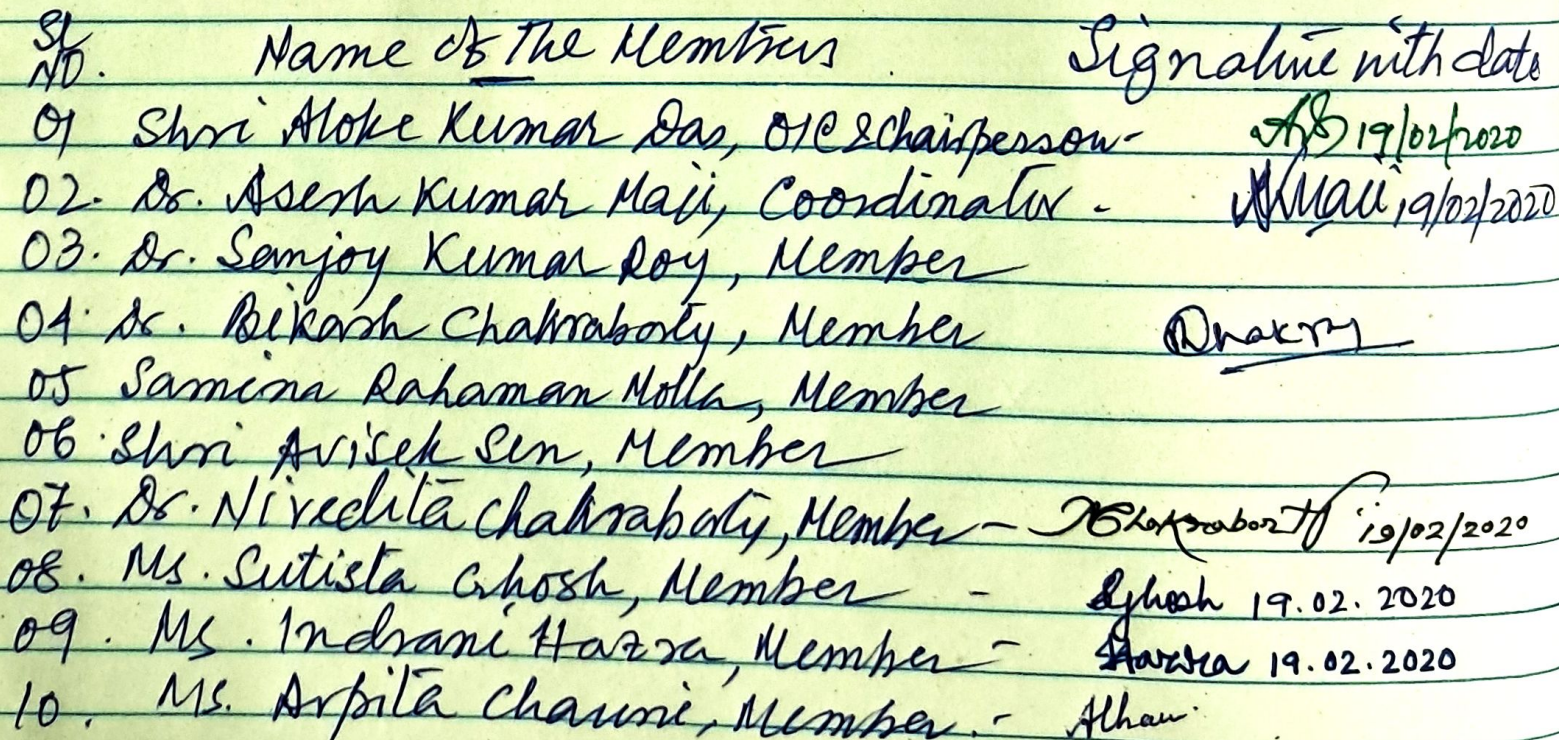 Sl NO. Name of The Members Signature with date
01 Shri Aloke Kumar Das, O/C & Chairperson - 19/02/2020
02. Dr. Asesh Kumar Maji, Coordinator - AKMaji 19/02/2020
03. Dr. Sanjoy Kumar Roy, Member
04. Dr. Bikash Chakraborty, Member
05 Samina Rahaman Molla, Member
06. Shri Avisek Sen, Member
07. Dr. Nivedita Chakraborty, Member - NChakraborty 19/02/2020
08. Ms. Sutista Ghosh, Member - SGhosh 19.02.2020
09. Ms. Indrani Hazra, Member - Hazra 19.02.2020
10. Ms. Arpita Member. -